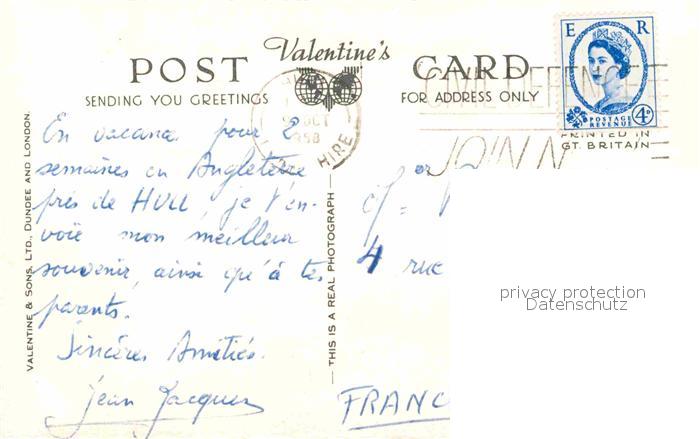 Valentine's
POST CARD
SENDING YOU GREETINGS
FOR ADDRESS ONLY
E R
POSTAGE
REVENUE
4D
PRINTED IN
GT. BRITAIN
CONFERENCE
JOIN N
OCT
1958
HIRE
En vacances pour 2
semaines en Angleterre
près de HULL, je t'en-
voie mon meilleur
souvenir, ainsi qu'à tes
parents.
Sincères Amitiés.
Jean Jacques
4 rue
FRANC
VALENTINE & SONS, LTD., DUNDEE AND LONDON.
THIS IS A REAL PHOTOGRAPH
privacy protection
Datenschutz